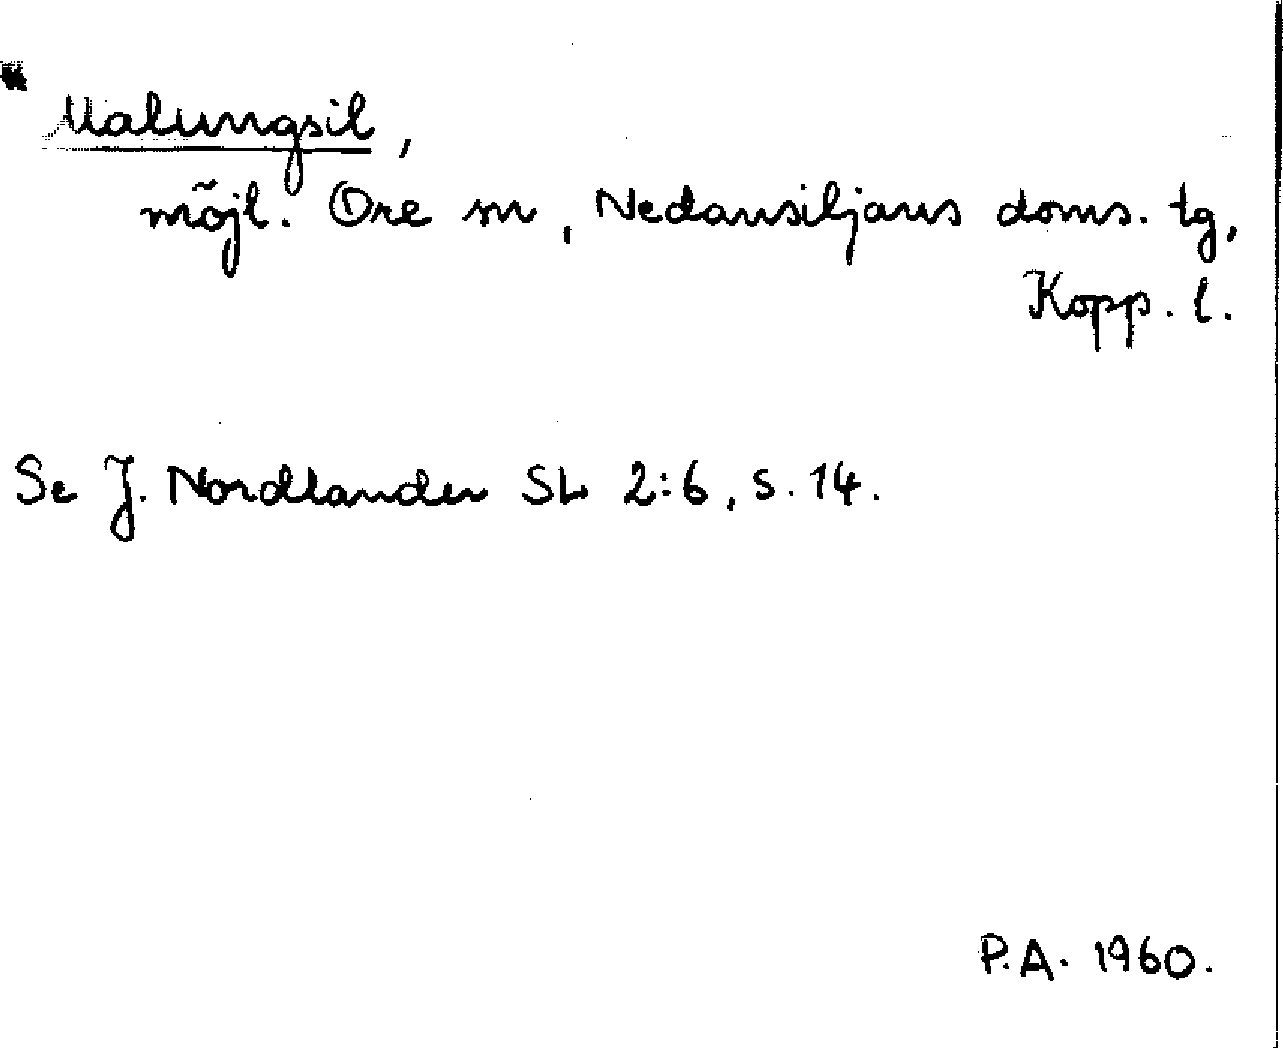 Malungsil,
möjl. Ore sn, Nedansiljans doms. tg,
Kopp. l.
Se J. Nordlander SL 2:6, s. 14.
P.A. 1960.